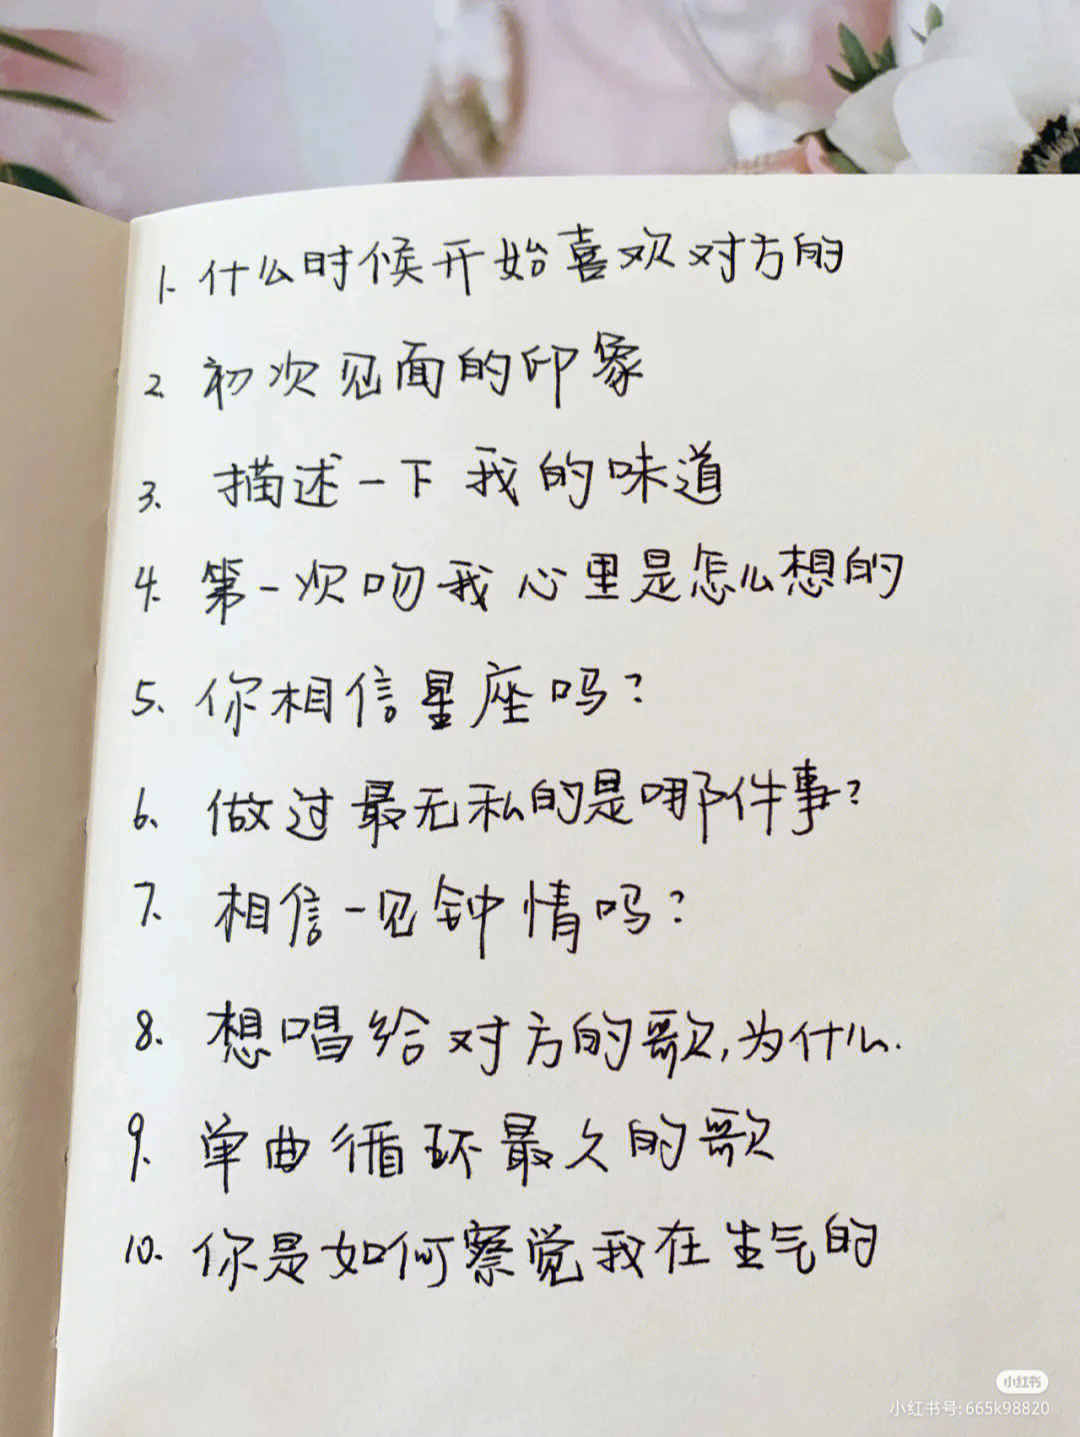 1. 什么时候开始喜欢对方的
2. 初次见面的印象
3. 描述一下我的味道
4. 第一次吻我心里是怎么想的
5. 你相信星座吗?
6. 做过最无私的是哪件事?
7. 相信一见钟情吗?
8. 想唱给对方的歌,为什么.
9. 单曲循环最久的歌
10. 你是如何察觉我在生气的
小红书
小红书号:665k98820